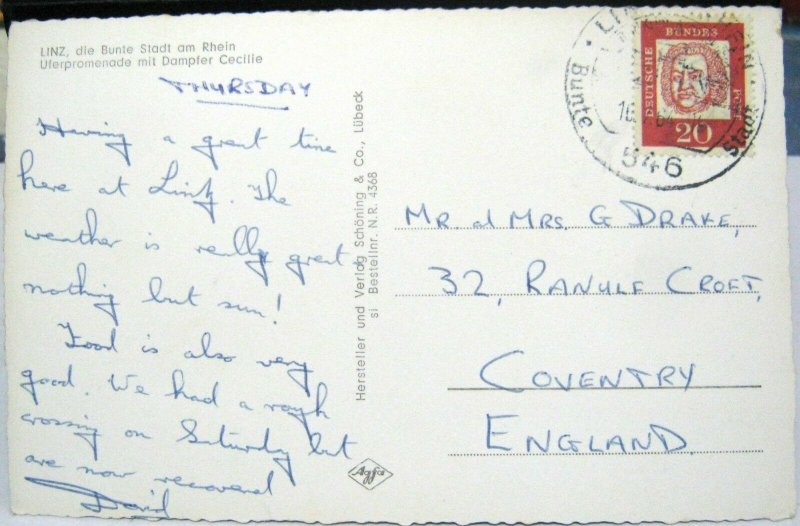 LINZ, die Bunte Stadt am Rhein
Uferpromenade mit Dampfer Cecilie
THURSDAY
Having a great time
here at Linz. The
weather is really great,
nothing but sun!
Food is also very
good. We had a rough
crossing on Saturday but
are now recovered
David
Hersteller und Verlag Schöning & Co., Lübeck
si Bestellnr. N.R. 4368
Agfa
Bunte Stadt
546
DEUTSCHE BUNDESPOST
20
Mr. & Mrs. G DRAKE,
32, RANULF CROFT,
COVENTRY
ENGLAND